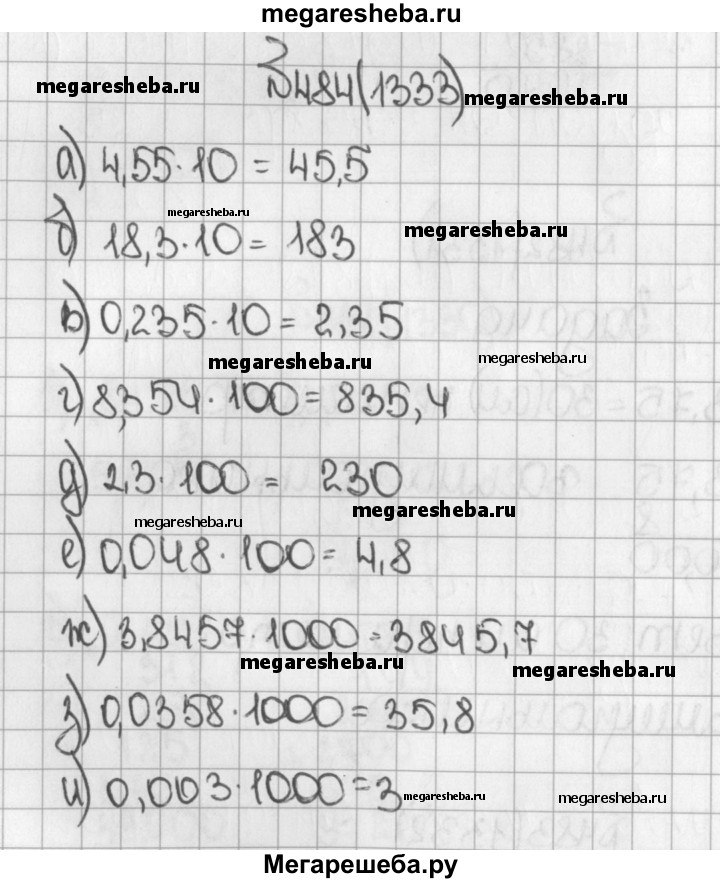 megaresheba.ru
megaresheba.ru
№484(1333)
megaresheba.ru
а) 4,55·10 = 45,5
megaresheba.ru
б) 18,3·10 = 183
megaresheba.ru
в) 0,235·10 = 2,35
megaresheba.ru
megaresheba.ru
г) 8,354·100 = 835,4
д) 2,3·100 = 230
megaresheba.ru
megaresheba.ru
е) 0,048·100 = 4,8
ж) 3,8457·1000 = 3845,7
megaresheba.ru
megaresheba.ru
з) 0,0358·1000 = 35,8
и) 0,003·1000 = 3
megaresheba.ru
megaresheba.ru
Мегарешеба.ру